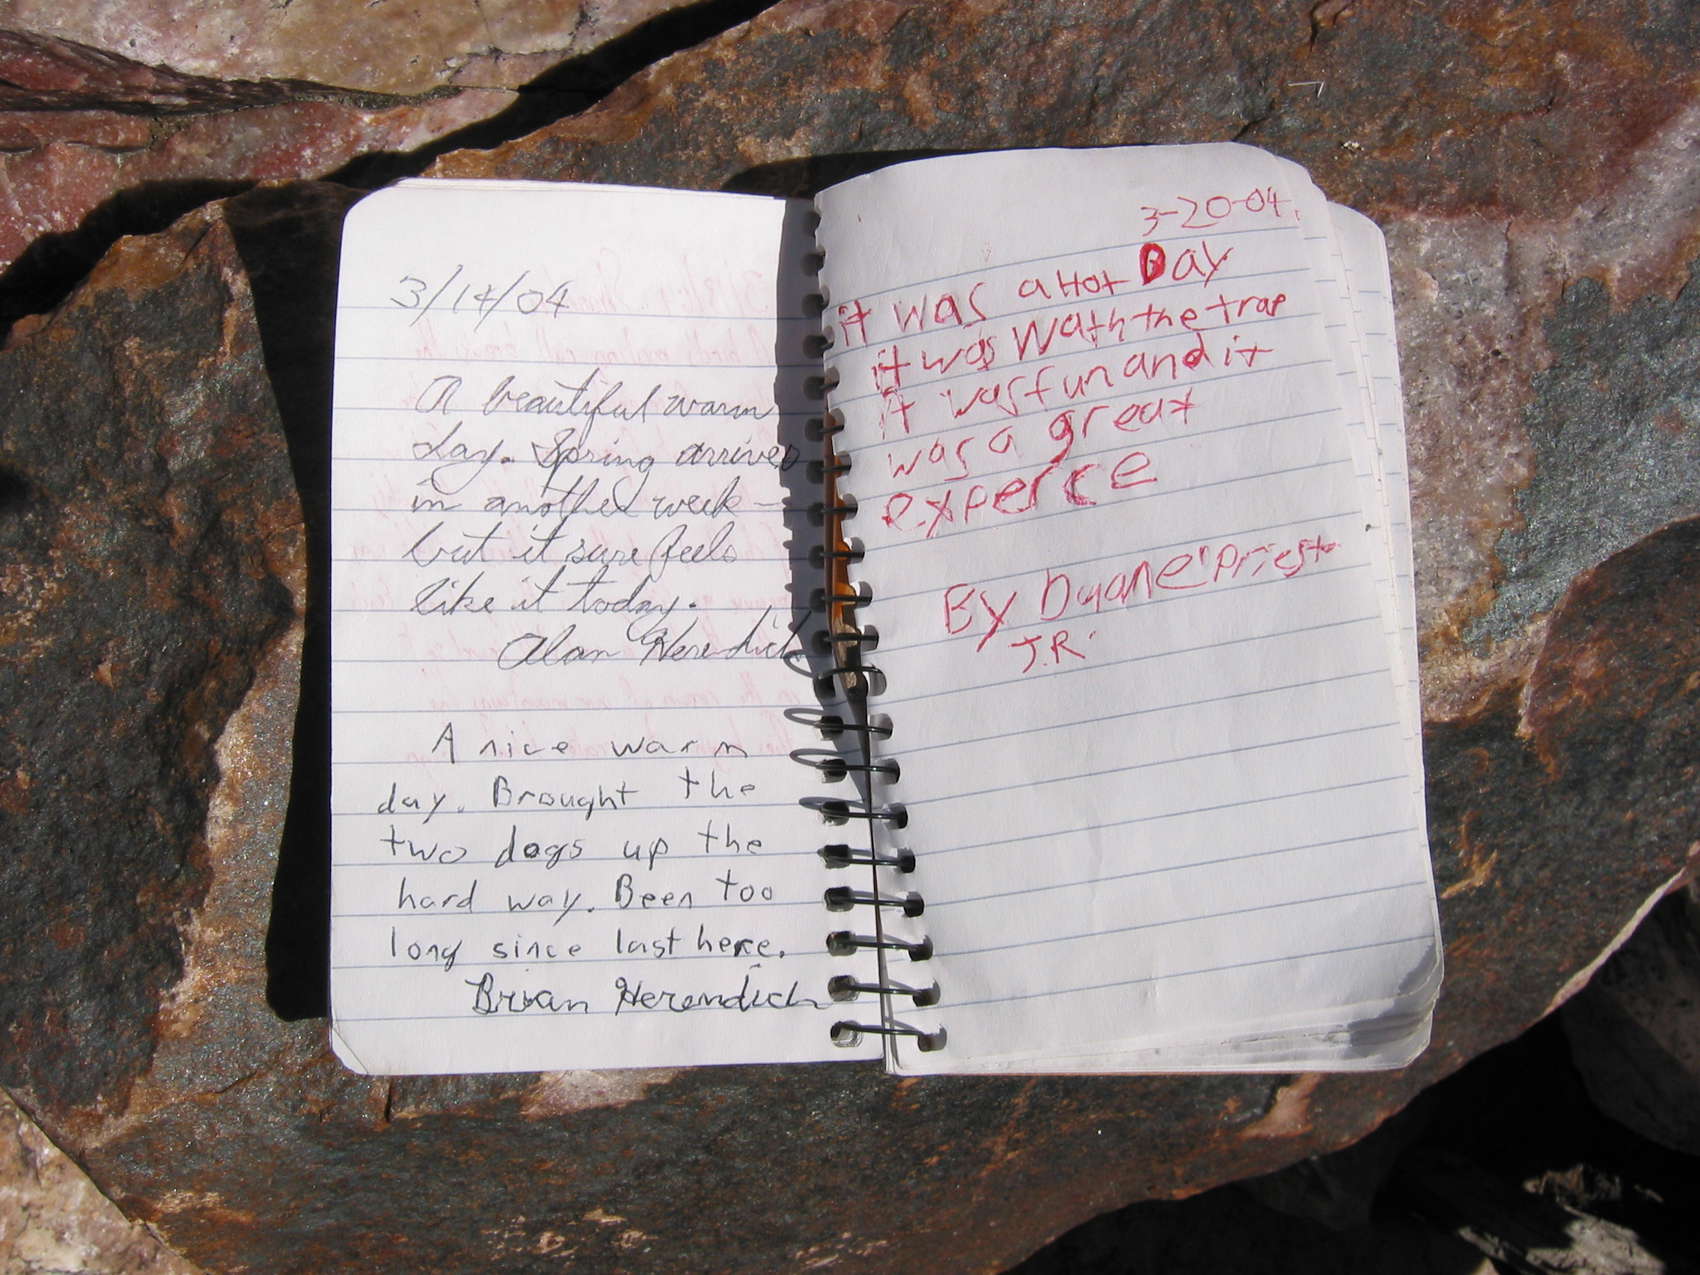 3/14/04
A beautiful warm
day. Spring arrives
in another week —
but it sure feels
like it today.
Alan Herendich
A nice warm
day. Brought the
two dogs up the
hard way. Been too
long since last here.
Brian Herendich
3-20-04.
it was a Hot Day
it was Wath the trap
it was fun and it
was a great
experce
By Duane Priest
J.R.